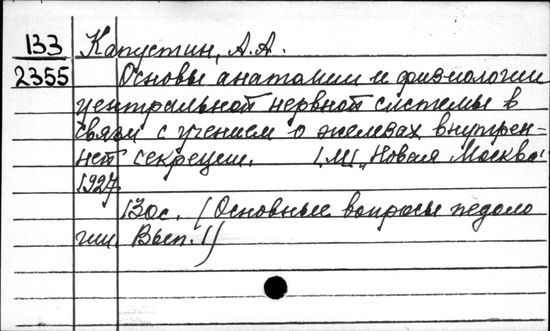 133 Капустин, А.А.
2355 Основы анатомии и физиологии
центральной нервной системы в
связи с учением о железах внутрен-
ней секреции. [М] „Новая Москва"
1927.
130с. (Основные вопросы педоло
гии. Вып. 1)